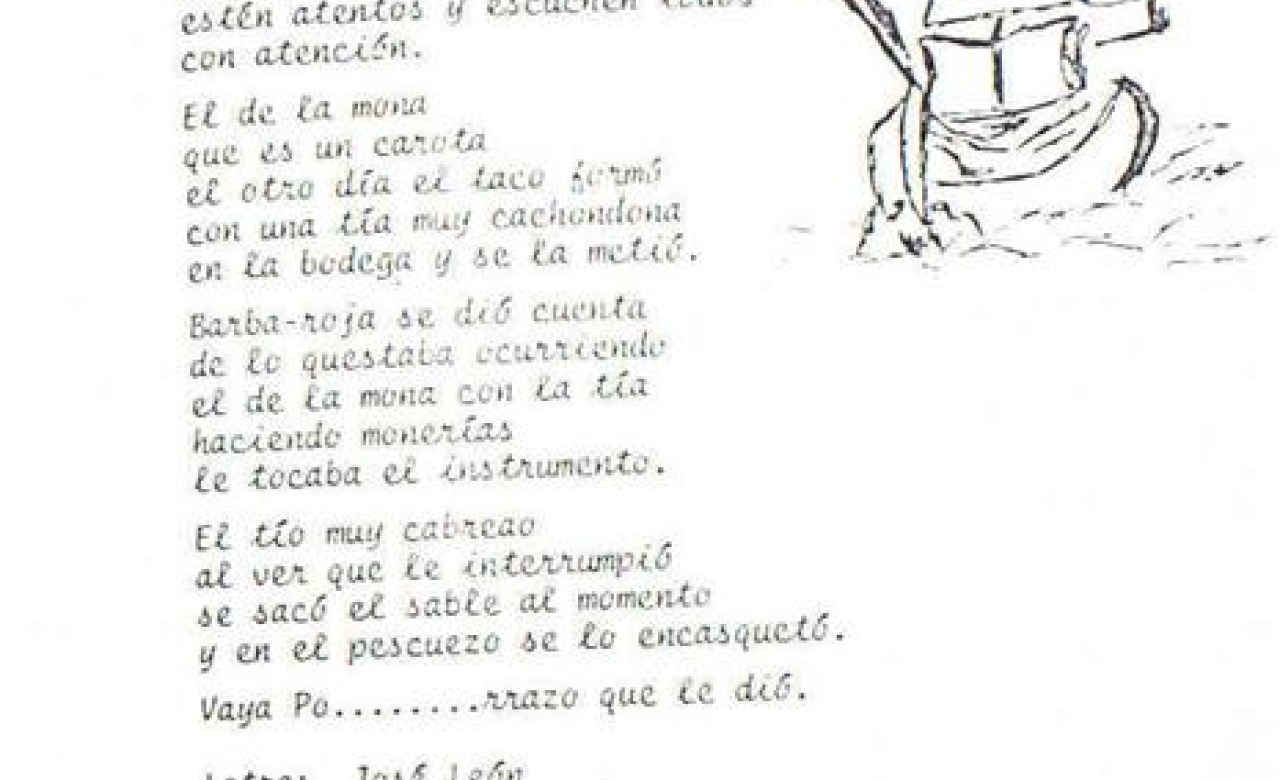 estén atentos y escuchen todos
con atención.
El de la mona
que es un carota
el otro día el taco formó
con una tía muy cachondona
en la bodega y se la metió.
Barba-roja se dió cuenta
de lo questaba ocurriendo
el de la mona con la tía
haciendo monerías
le tocaba el instrumento.
El tío muy cabreao
al ver que le interrumpió
se sacó el sable al momento
y en el pescuezo se lo encasquetó.
Vaya Po........rrazo que le dió.
Letra: José León